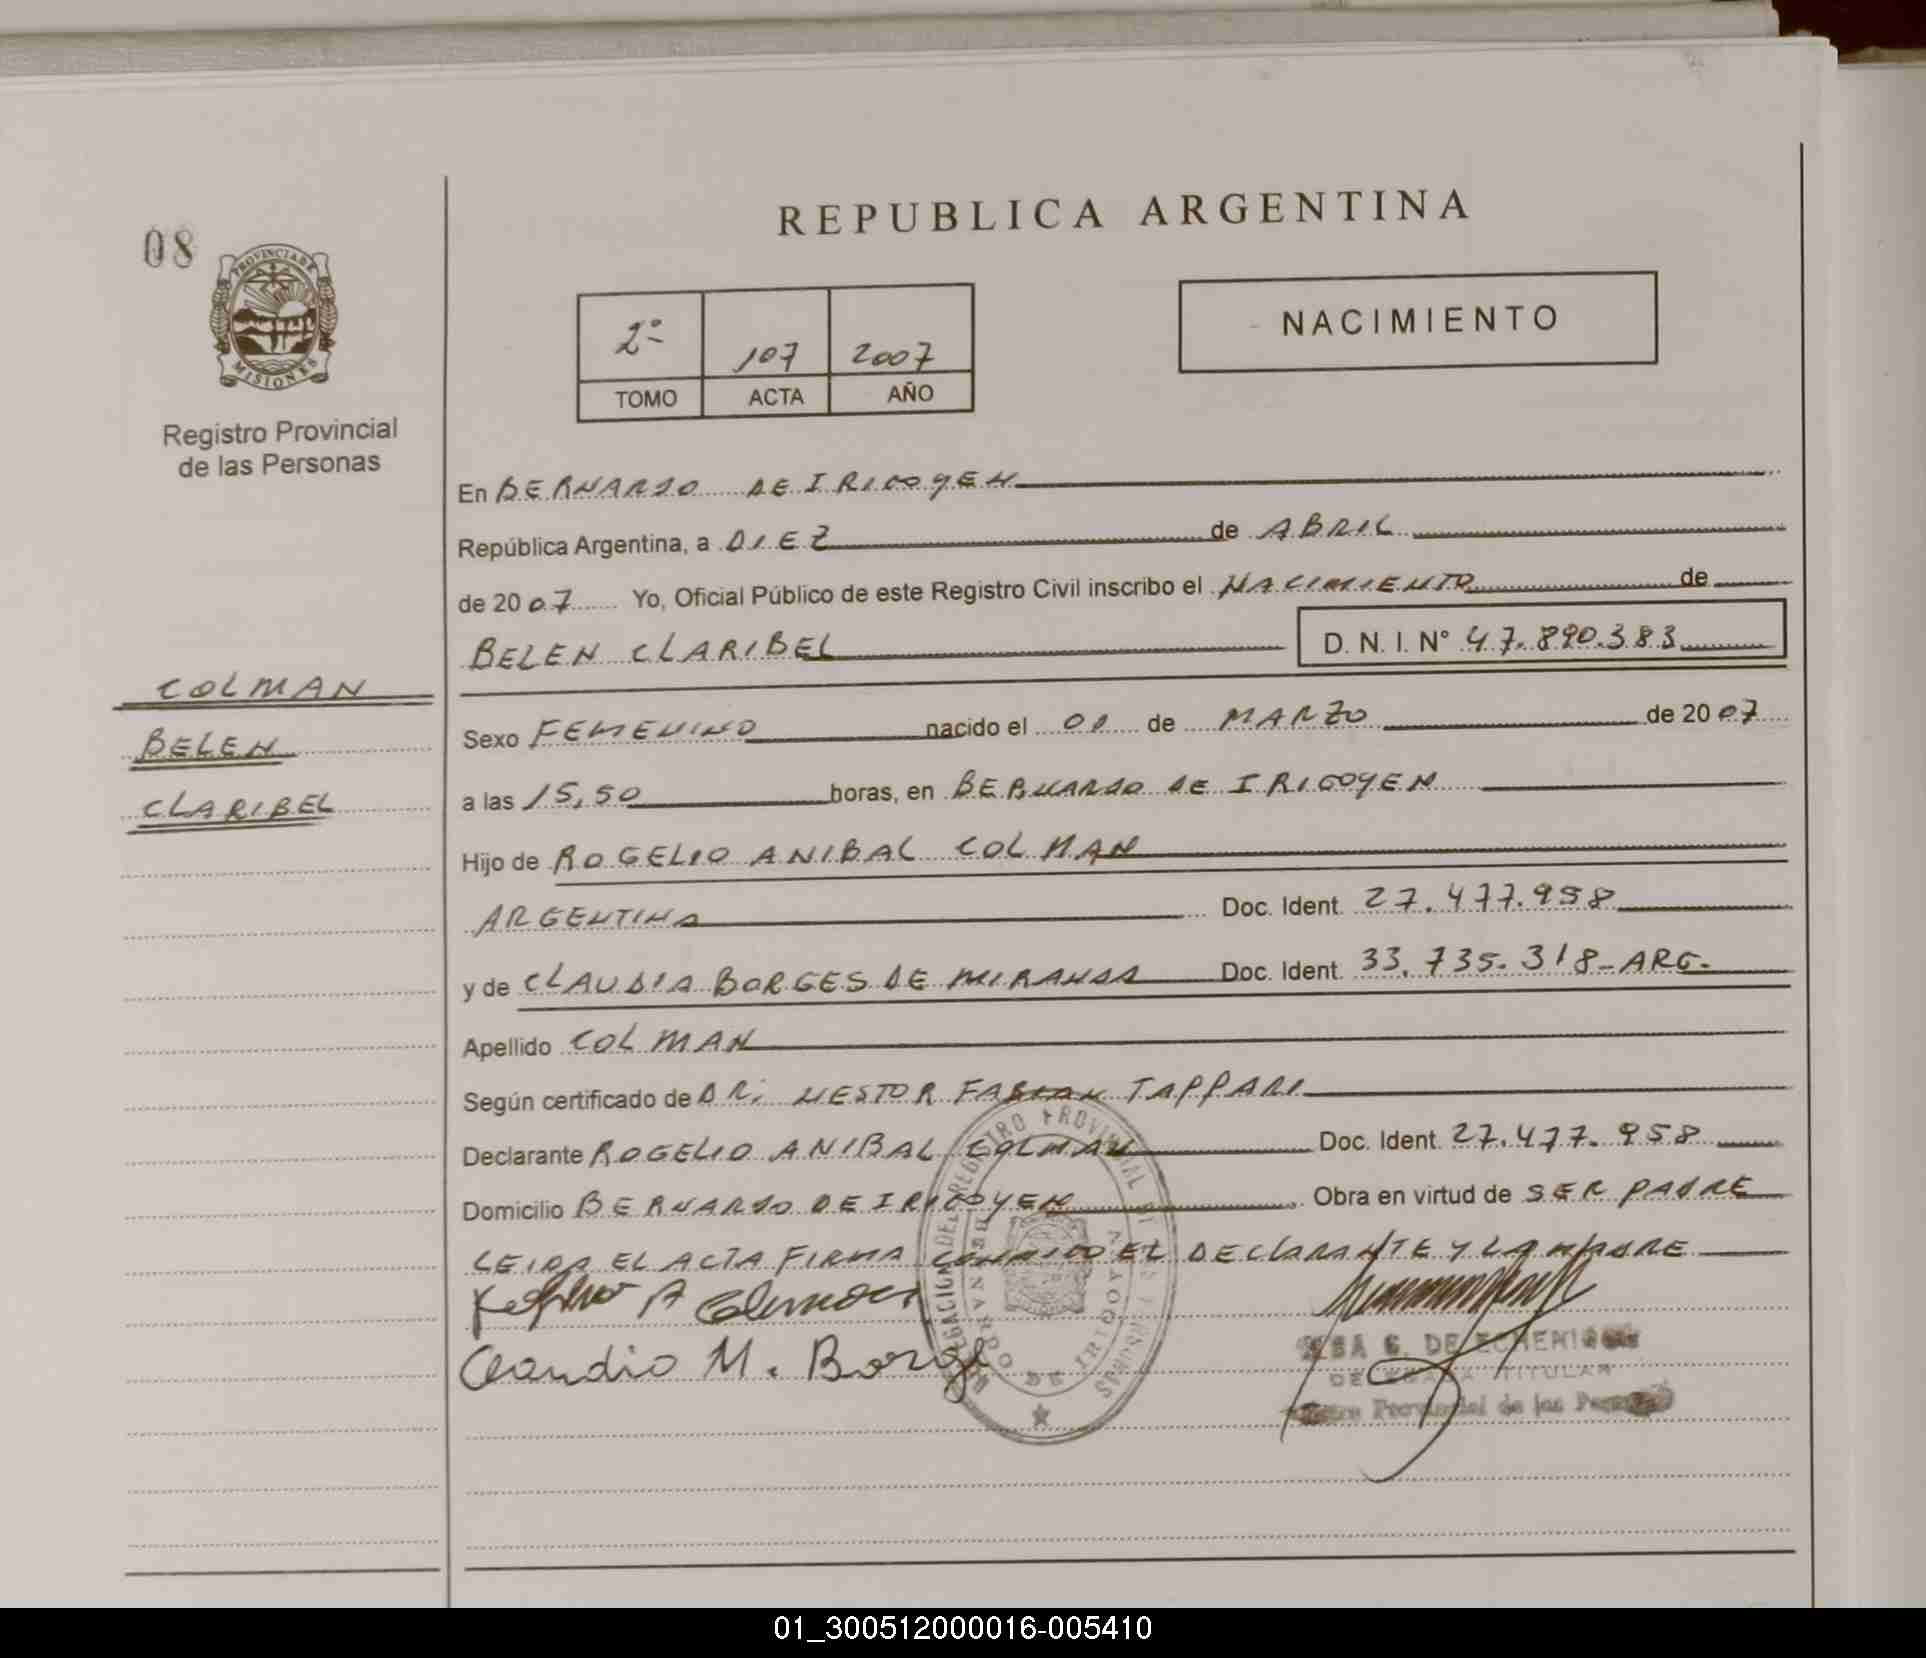 REPUBLICA ARGENTINA
08
PROVINCIA DE
MISIONES
Registro Provincial
de las Personas
2º 107 2007
TOMO ACTA AÑO
NACIMIENTO
En BERNARDO DE IRIGOYEN
República Argentina, a DIEZ de ABRIL
de 2007 Yo, Oficial Público de este Registro Civil inscribo el NACIMIENTO de
BELEN CLARIBEL D. N. I. N° 47.890.383
COLMAN
BELEN
CLARIBEL
Sexo FEMENINO nacido el de MARZO de 2007
a las 15,50 horas, en BERNARDO DE IRIGOYEN
Hijo de ROGELIO ANIBAL COLMAN
ARGENTINA Doc. Ident. 27.477.958
y de CLAUDIA BORGES DE MIRANDA Doc. Ident. 33.735.318-ARG.
Apellido COLMAN
Según certificado de DR. NESTOR FABIAN TAPPARI
Declarante ROGELIO ANIBAL COLMAN Doc. Ident. 27.477.958
Domicilio BERNARDO DE IRIGOYEN Obra en virtud de SER PADRE
LEIDA EL ACTA FIRMA CONMIGO EL DECLARANTE Y LA MADRE
Claudio M. Borge
DELEGACION DEL REGISTRO PROVINCIAL DE LAS PERSONAS
BERNARDO DE IRIGOYEN
G. DE
TITULAR
de las
01_300512000016-005410